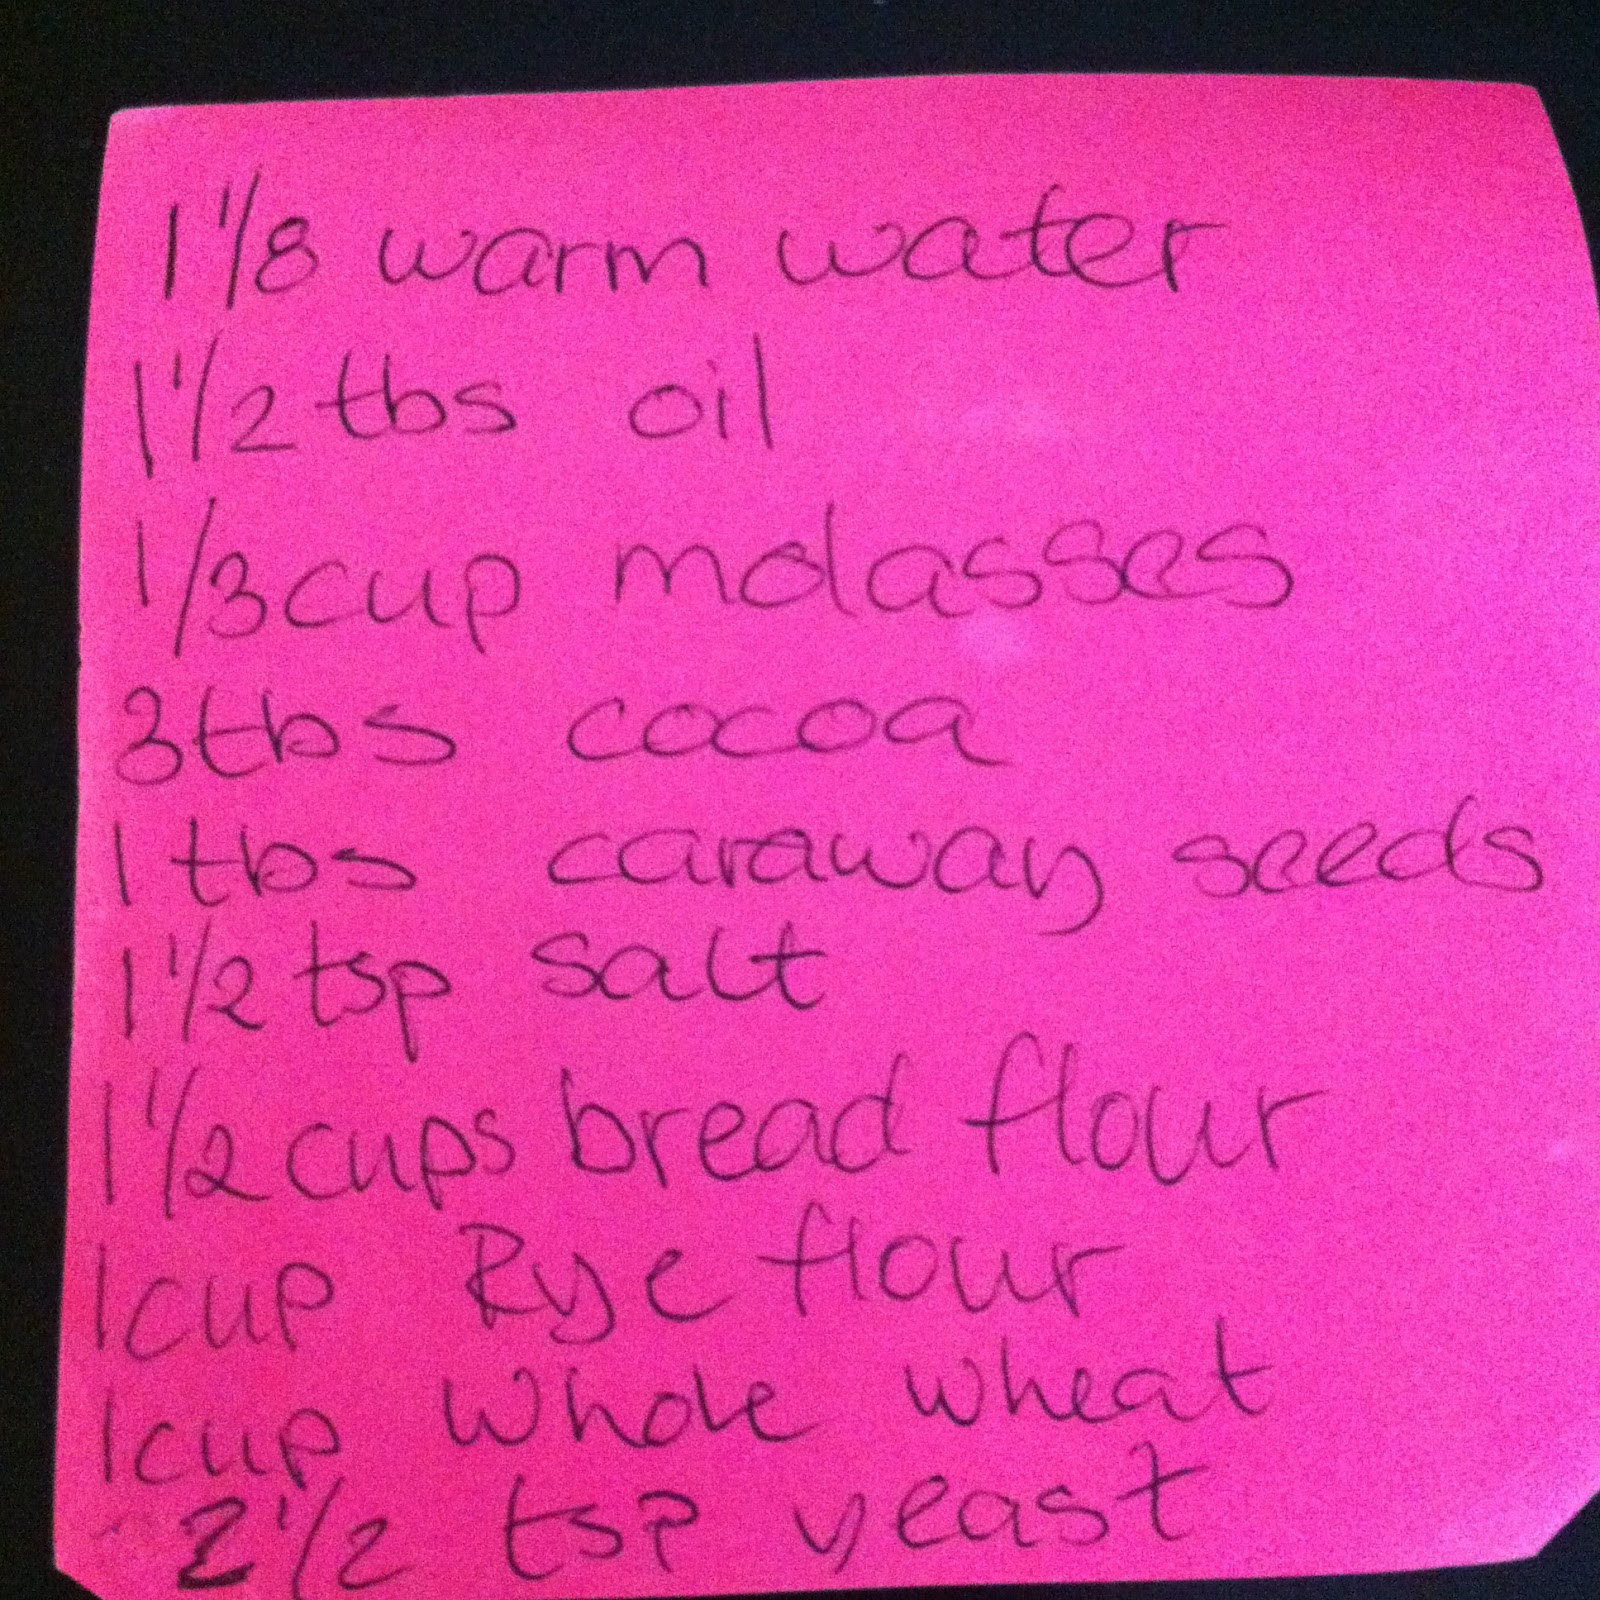 1 1/8 warm water
1 1/2 tbs oil
1/3 cup molasses
3 tbs cocoa
1 tbs caraway seeds
1 1/2 tsp salt
1 1/2 cups bread flour
1 cup Rye flour
1 cup whole wheat
2 1/2 tsp yeast